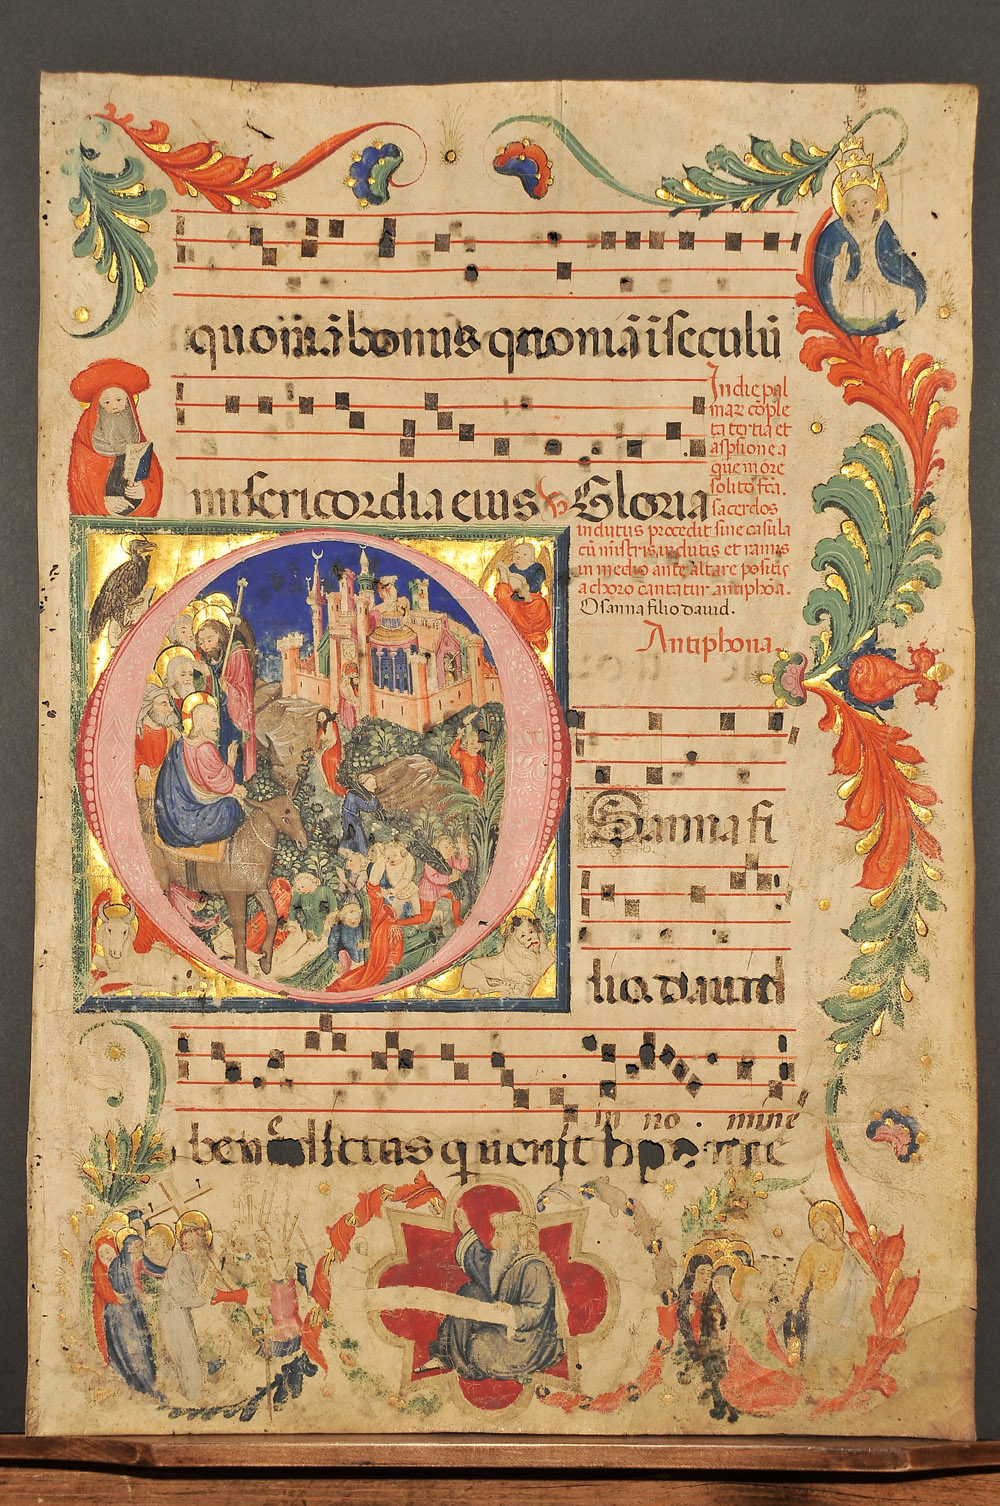 quoniā bonus quoniā ī seculū
misericordia eius Gloria
In die pal
mar̄ cōple
ta tertia et
aspsione a
que mōre
solito fcā.
sacerdos
indutus procedit sine casula
cū mistris indutis et ramis
in medio ante altare positis
a choro cantatur antiphoa.
Osanna filio david.
Antiphona.
Sanna fi
lio. david
in no mine
benedictus qui venit